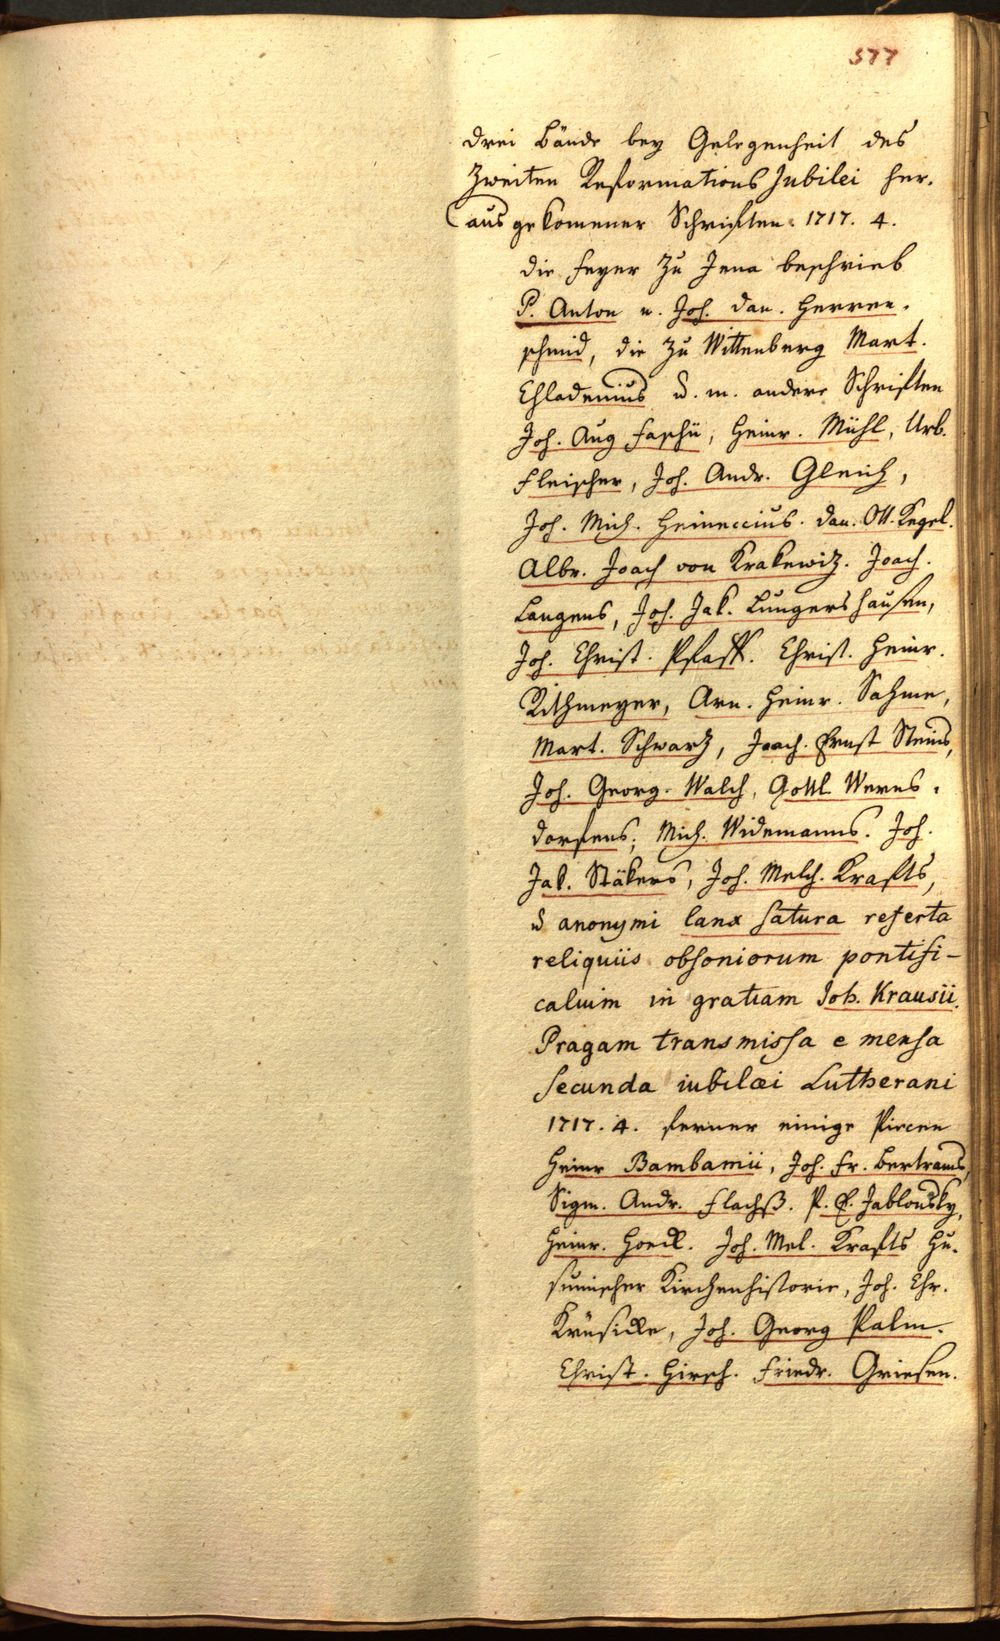 577
drei Bände bey Gelegenheit des
zweiten Reformations Jubilei her-
aus gekomener Schriften. 1717. 4.
die Feyer zu Jena beschrieb
P. Anton u. Joh. Dan. Herren-
schmid, die zu Wittenberg Mart.
Chladenius u. m. andere Schriften
Joh. Aug Faschii, Heinr. Mühl, Urb.
Fleischer, Joh. Andr. Gleich,
Joh. Mich. Heineccius. Dan. Ott. Kegel.
Albr. Joach von Krakewiz. Joach.
Langens, Joh. Jak. Lungershausen,
Joh. Christ. Pfaff. Christ. Heinr.
Rithmeyer, Arn. Heinr. Sahme,
Mart. Schwarz, Joach. Ernst Steins,
Joh. Georg. Walch, Gottl Werns-
dorfens, Mich. Widemanns. Joh.
Jak. Stäkers, Joh. Melch. Krafts,
u anonymi lanx satura referta
reliquiis obsoniorum pontifi-
calium in gratiam Joh. Krausii.
Pragam transmissa e mensa
secunda iubilæi Lutherani
1717. 4. ferner einige Piecen
Heinr Bambamii, Joh. Fr. Bertrams,
Sigm. Andr. Flachß. P. E. Jablonsky,
Heinr. Hoeck. Joh. Mel. Krafts Hu-
sumischer Kirchenhistorie, Joh. Chr.
Krüsicke, Joh. Georg Palm.
Christ. Hirsch. Friedr. Griesen.